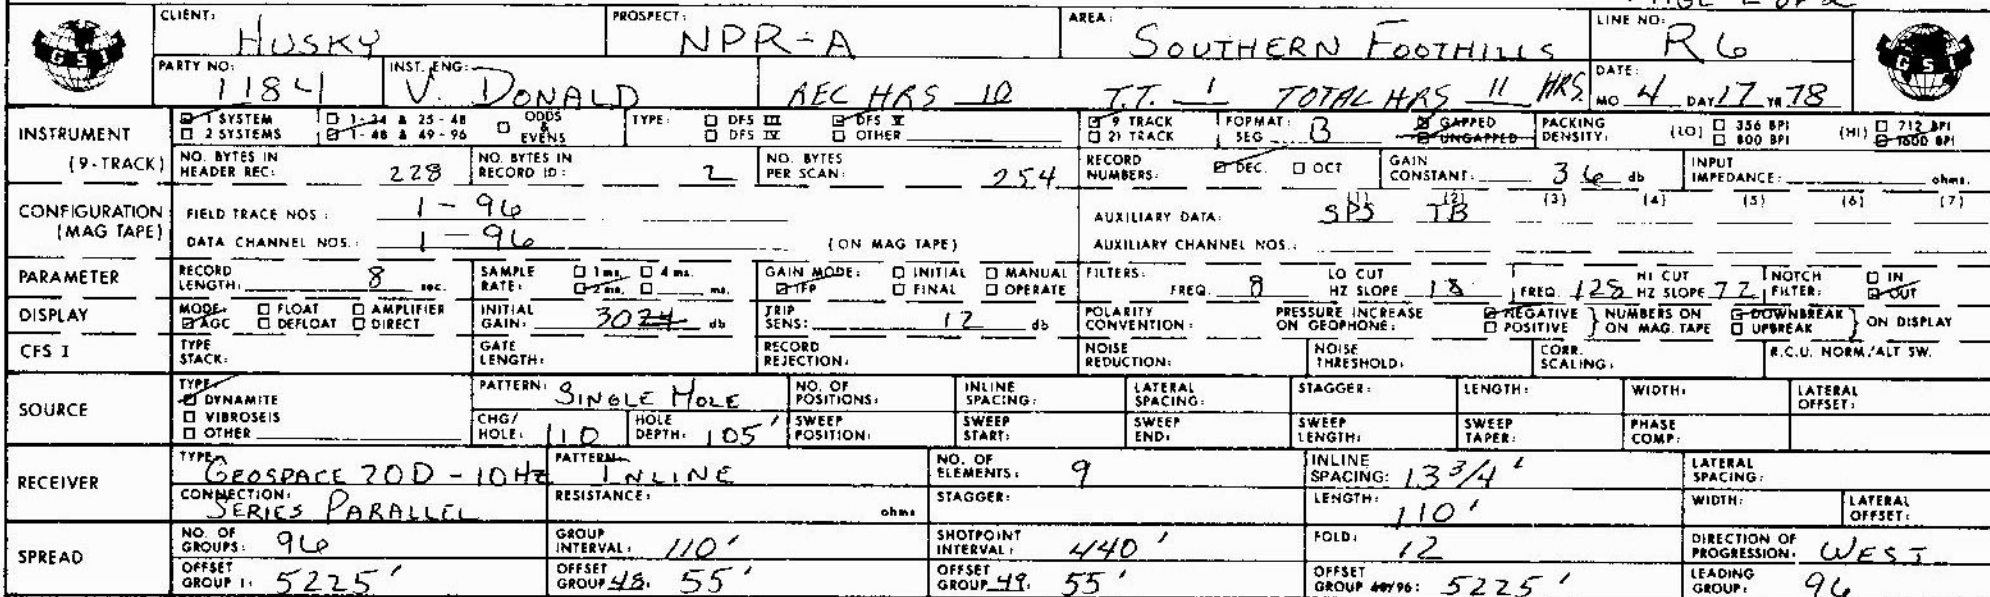 PAGE 2 OF 2
CLIENT: HUSKY PROSPECT: NPR-A AREA: SOUTHERN FOOTHILLS LINE NO: R6
GSI GSI
PARTY NO: 1184 INST. ENG: V. DONALD REC HRS 10 T.T. 1 TOTAL HRS 11 HRS. DATE: MO 4 DAY 17 YR 78
INSTRUMENT 1 SYSTEM 1-24 & 25-48 ODDS & EVENS TYPE: DFS III DFS V 9 TRACK FORMAT: SEG B GAPPED PACKING DENSITY: (LO) 356 BPI (HI) 712 BPI
2 SYSTEMS 1-48 & 49-96 DFS IV OTHER 21 TRACK UNGAPPED 800 BPI 1600 BPI
(9-TRACK) NO. BYTES IN HEADER REC: 228 NO. BYTES IN RECORD ID: 2 NO. BYTES PER SCAN: 254 RECORD NUMBERS: DEC. OCT GAIN CONSTANT: 36 db INPUT IMPEDANCE: ohms.
CONFIGURATION (MAG TAPE) FIELD TRACE NOS: 1-96 AUXILIARY DATA: (1) SPS (2) TB (3) (4) (5) (6) (7)
DATA CHANNEL NOS.: 1-96 (ON MAG TAPE) AUXILIARY CHANNEL NOS.:
PARAMETER RECORD LENGTH: 8 sec. SAMPLE RATE: 1 ms. 4 ms. 2 ms. ms. GAIN MODE: INITIAL MANUAL IFP FINAL OPERATE FILTERS: FREQ. 8 LO CUT HZ SLOPE 18 FREQ. 128 HI CUT HZ SLOPE 72 NOTCH FILTER: IN OUT
DISPLAY MODE: FLOAT AMPLIFIER AGC DEFLOAT DIRECT INITIAL GAIN: 30 24 db TRIP SENS: 12 db POLARITY CONVENTION: PRESSURE INCREASE ON GEOPHONE: NEGATIVE POSITIVE NUMBERS ON ON MAG. TAPE DOWNBREAK UPBREAK ON DISPLAY
CFS I TYPE STACK: GATE LENGTH: RECORD REJECTION: NOISE REDUCTION: NOISE THRESHOLD: CORR. SCALING: R.C.U. NORM./ALT SW.
SOURCE TYPE DYNAMITE PATTERN: SINGLE HOLE NO. OF POSITIONS: INLINE SPACING: LATERAL SPACING: STAGGER: LENGTH: WIDTH: LATERAL OFFSET:
VIBROSEIS OTHER CHG/HOLE: 110 HOLE DEPTH: 105' SWEEP POSITION: SWEEP START: SWEEP END: SWEEP LENGTH: SWEEP TAPER: PHASE COMP:
RECEIVER TYPE GEOSPACE 20D - 10Hz PATTERN INLINE NO. OF ELEMENTS: 9 INLINE SPACING: 13 3/4' LATERAL SPACING:
CONNECTION: SERIES PARALLEL RESISTANCE: ohms STAGGER: LENGTH: 110' WIDTH: LATERAL OFFSET:
SPREAD NO. OF GROUPS: 96 GROUP INTERVAL: 110' SHOTPOINT INTERVAL: 440' FOLD: 12 DIRECTION OF PROGRESSION: WEST
OFFSET GROUP 1: 5225' OFFSET GROUP 48: 55' OFFSET GROUP 49: 55' OFFSET GROUP 48/96: 5225' LEADING GROUP: 96